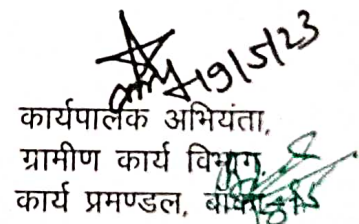 19/5/23
कार्यपालक अभियंता,
ग्रामीण कार्य विभाग,
कार्य प्रमण्डल,